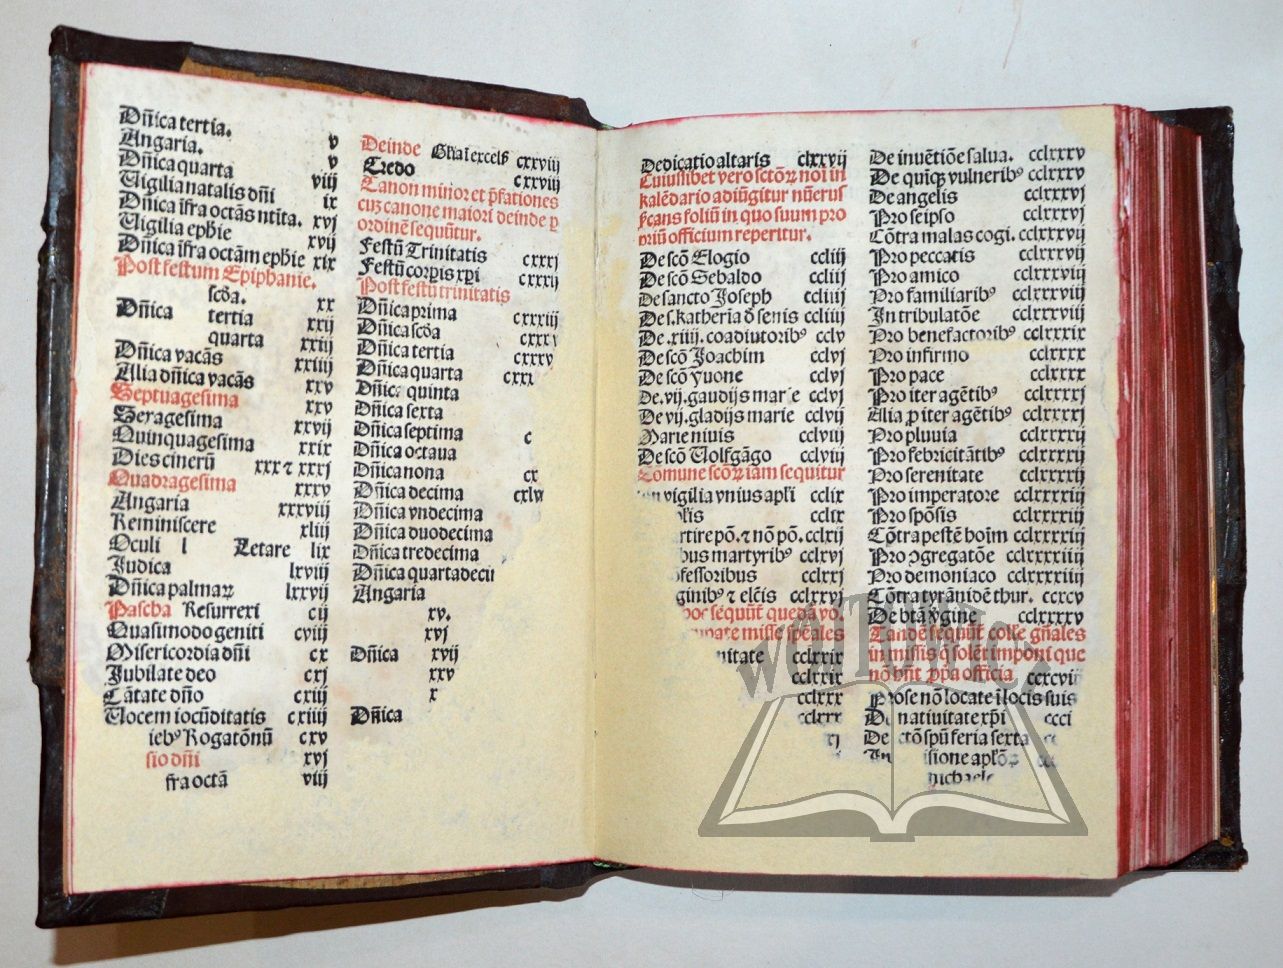 Dñica tertia. v
Angaria. v
Dñica quarta viij
Vigilia natalis dñi ix
Dñica ĩfra octãs ntita. xvj
Vigilia ephie xvij
Dñica ĩfra octãm ephie xix
Post festum Epiphanie.
scďa. xx
Dñica tertia xxij
quarta xxiij
Dñica vacãs xxiiij
Alia dñica vacãs xxv
Septuagesima xxv
Sexagesima xxvij
Quinquagesima xxix
Dies cinerũ xxx ⁊ xxxj
Quadragesima xxxv
Angaria xxxviij
Reminiscere xliij
Oculi l Letare lix
Judica lxviij
Dñica palmaꝝ lxxvij
Pascha Resurrexi cij
Quasimodo geniti cviij
Misericordia dñi cx
Jubilate deo cxj
Cãtate dño cxij
Vocem iocũditatis cxiiij
iebꝰ Rogatõnũ cxv
sio dñi xvj
fra octã viij
Deinde Gĺia ĩ excelś cxxviij
Credo cxxviij
Canon minor et p̃fationes
cuꝫ canone maiori deinde ꝑ
ordinẽ sequũtur.
Festũ Trinitatis cxxxj
Festũ corꝑis xp̃i cxxxij
Post festũ trinitatis
Dñica prima cxxxiij
Dñica scďa cxxx
Dñica tertia cxxxv
Dñica quarta cxxx
Dñica quinta
Dñica sexta
Dñica septima c
Dñica octaua
Dñica nona cx
Dñica decima cxlv
Dñica vndecima
Dñica duodecima
Dñica tredecima
Dñica quartadeci
Angaria
xv.
xvj
Dñica xvij
xxv
x
Dñica
Dedicatio altaris clxxvij
Cuiuslibet vero sctõꝝ noĩ in
kalẽdario adiũgitur nũerus
p̃cans foliũ in quo suum pro
priũ officium reperitur.
De scõ Elogio ccliij
De scõ Sebaldo ccliij
De sancto Joseph ccliiij
De s. katheria ď senis ccliiij
De .xiiij. coadiutoribꝰ cclv
De scõ Joachim cclvj
De scõ Yuone cclvj
De .vij. gaudijs marie cclvj
De vij. gladijs marie cclvij
Marie niuis cclviij
De scõ Wolfgãgo cclviij
Comune scõꝝ iam sequitur
vigilia vnius apĺi cclix
cclix
rtire põ. ⁊ nõ põ. cclxij
bus martyribꝰ cclxvj
fessoribus cclxxj
ginibꝰ ⁊ elc̃is cclxxvj
seq̃uũt queda vo
missẽ sp̃eales
nitate cclxxix
cclxxix
cclxxx
cclxxx
De inuẽtiõe salua. cclxxxv
De quiqꝫ vulneribꝰ cclxxxv
De angelis cclxxxvj
Pro seipso cclxxxvj
Cõtra malas cogi. cclxxxvij
Pro peccatis cclxxxvij
Pro amico cclxxxviij
Pro familiaribꝰ cclxxxviij
In tribulatõe cclxxxviij
Pro benefactoribꝰ cclxxxix
Pro infirmo cclxxxx
Pro pace cclxxxx
Pro iter agẽtibꝰ cclxxxxj
Alia ꝓ iter agẽtibꝰ cclxxxxj
Pro pluuia cclxxxxij
Pro febricitãtibꝰ cclxxxxij
Pro serenitate cclxxxxij
Pro imperatore cclxxxxiij
Pro spõsis cclxxxxiij
Cõtra pestẽ hoĩm cclxxxxiij
Pro ↄgregatõe cclxxxxiiij
Pro demoniaco cclxxxxiiij
Cõtra tyrãnidẽ thur. ccxcv
De btã ꝟgine cclxxxxv
Tandẽ seq̃uũt colľe gñales
in missis q̃ solẽt imponi que
nõ hñt ꝓp̃a officia ccxcvij
Prose nõ locate ĩ locis suis
De natiuitate xp̃i ccci
De ctõ sp̃u feria sexta cc
sione apľoꝝ cc
michaele
WÓJTOWICZ